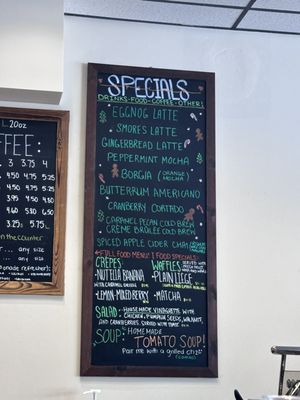 L 20oz
FEE
3 3.75 4
4.50 4.75 5.25
4.50 4.75 5.25
3.95 4.50 5
4.60 5.20 5.50
3.25 5.75
on the counter
... any size
... any size
SPECIALS
DRINKS-FOOD-COFFEE-OTHER!
EGGNOG LATTE
S'MORES LATTE
GINGERBREAD LATTE
PEPPERMINT MOCHA
BORGIA (ORANGE MOCHA)
BUTTERRUM AMERICANO
CRANBERRY CORTADO
CARAMEL PECAN COLD BREW
CRÈME BRÛLÉE COLD BREW
SPICED APPLE CIDER CHAI
FULL FOOD MENU & FOOD SPECIALS
CRÊPES: WAFFLES
-NUTELLA BANANA -PLAIN LIEGE
-LEMON-MIXED BERRY -MATCHA
SALAD: HOUSEMADE VINAIGRETTE WITH
CHICKEN, PUMPKIN SEEDS, WALNUT,
AND CRANBERRIES. SERVED WITH TOAST
SOUP: HOMEMADE
TOMATO SOUP!
Pair me with a grilled chz!